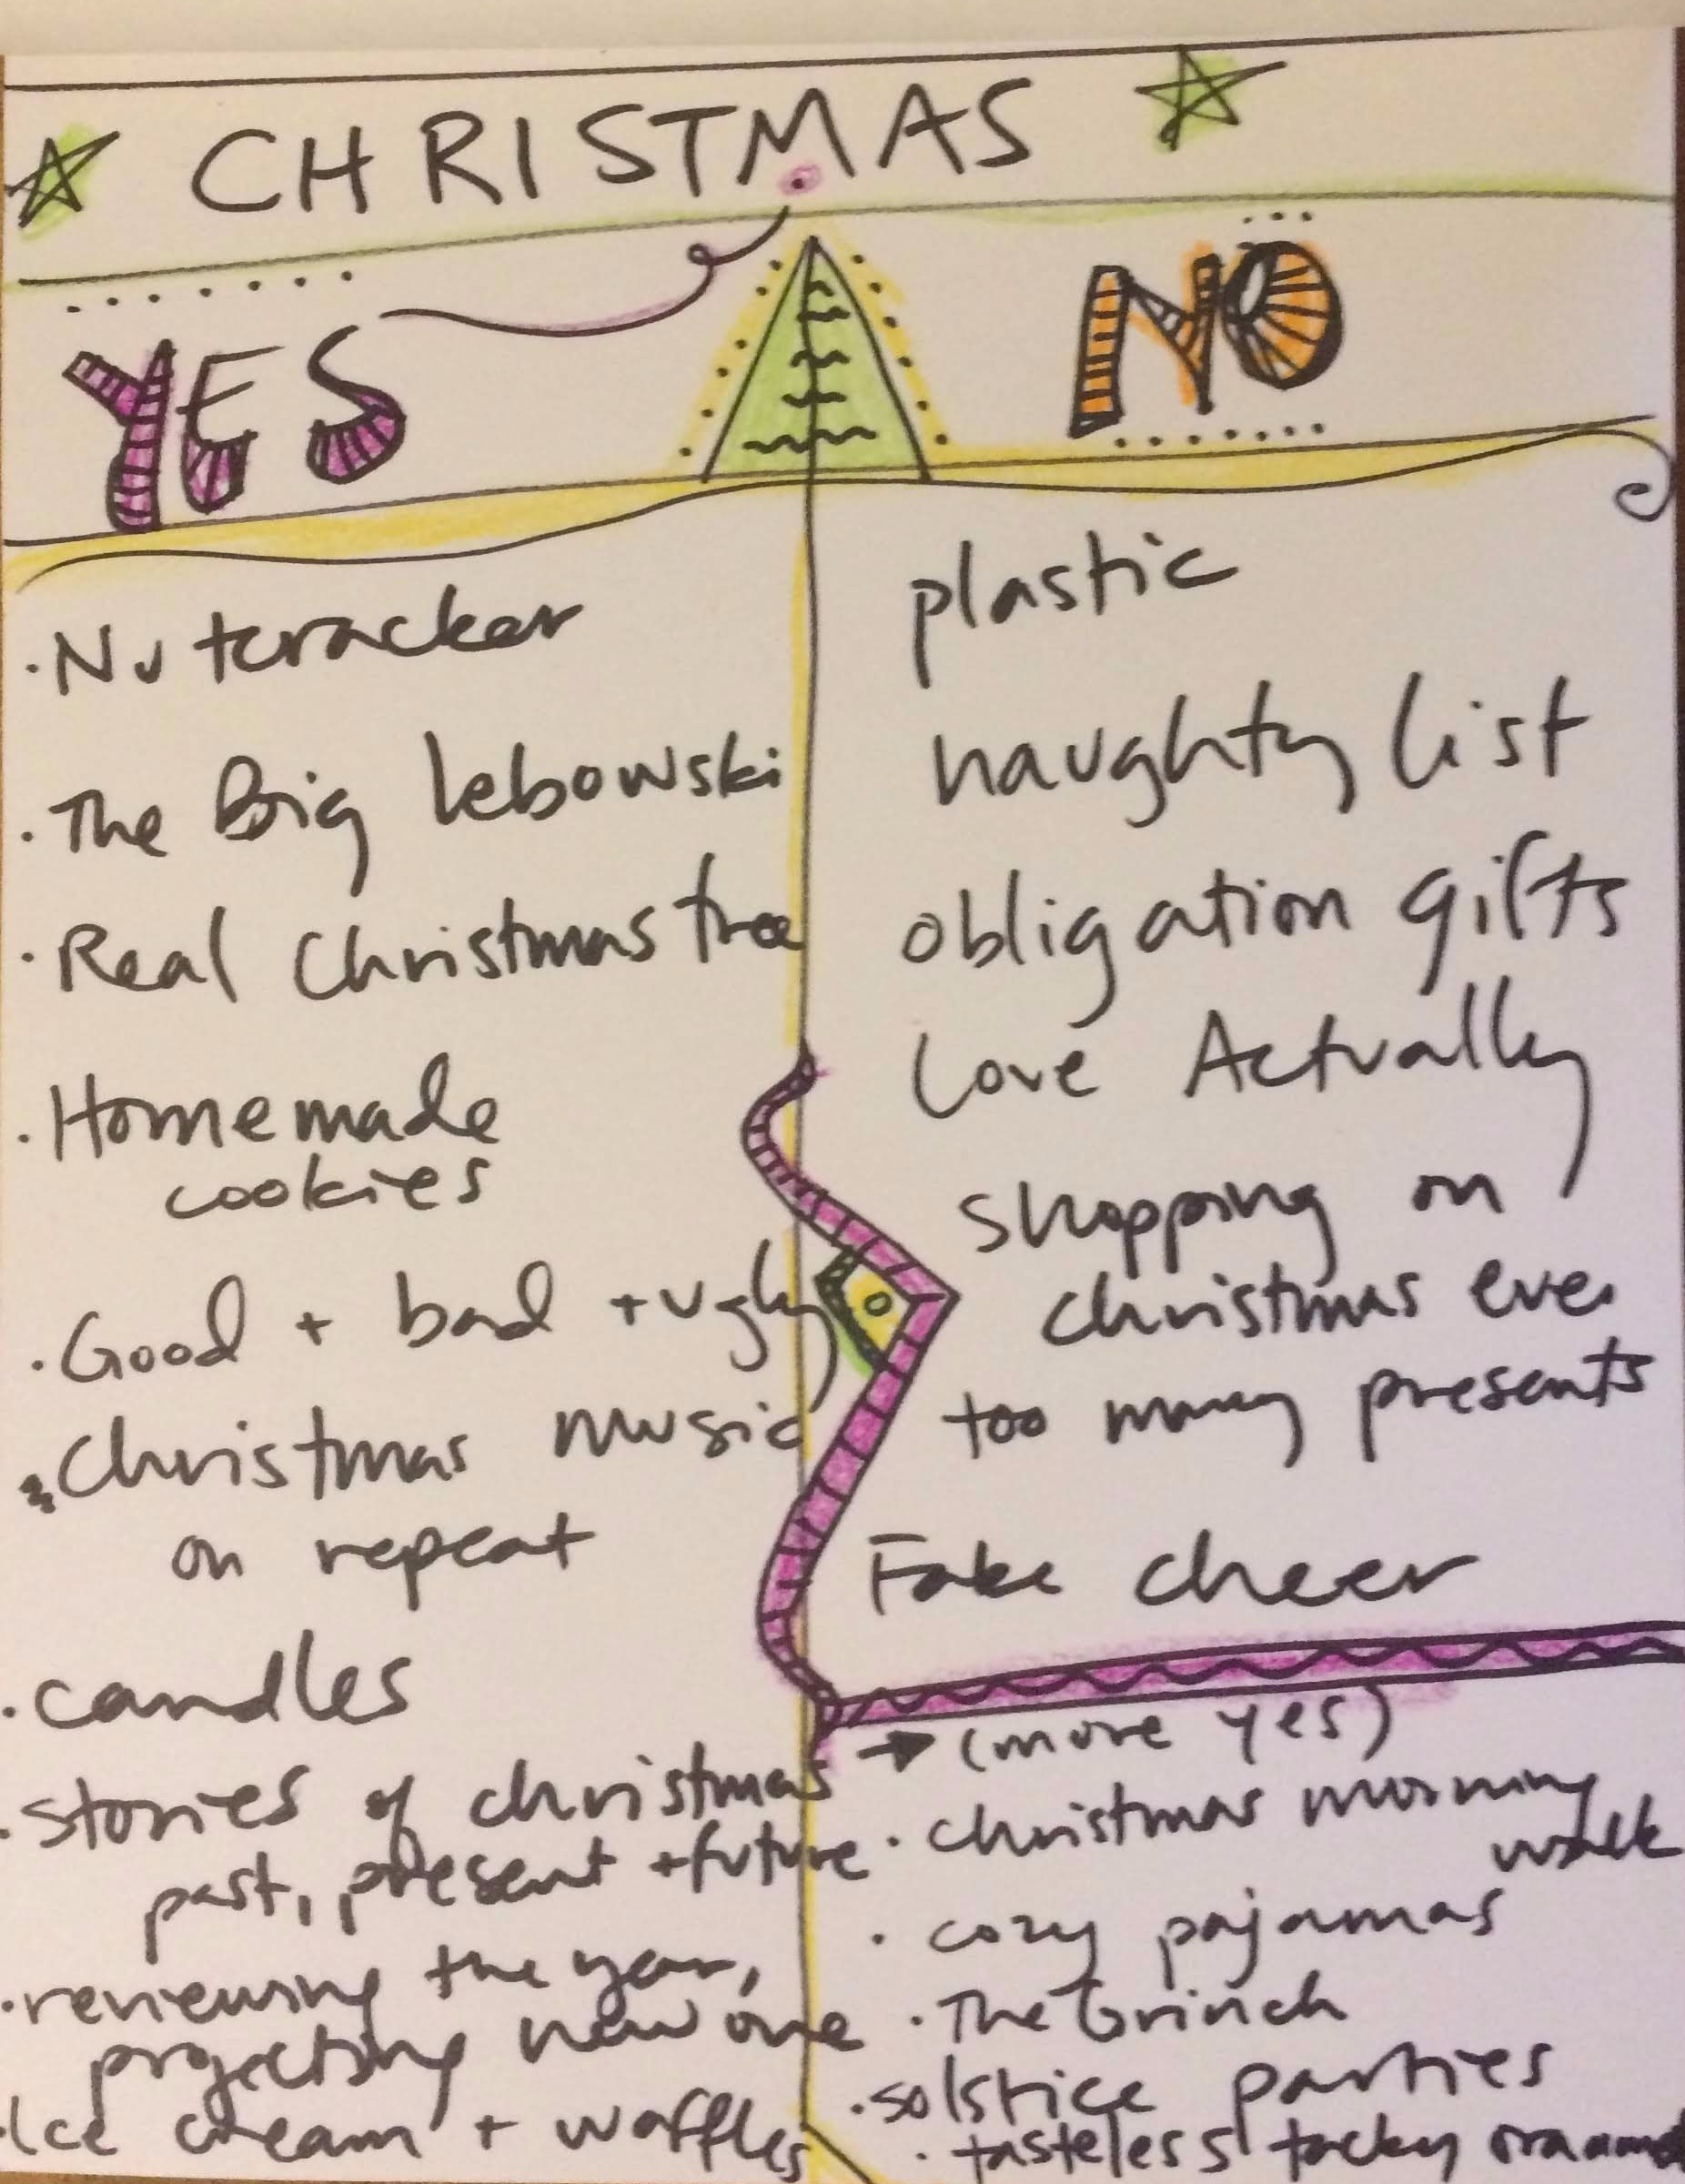 CHRISTMAS
YES
NO
· Nutcracker
· The Big Lebowski
· Real Christmas tree
· Homemade
cookies
· Good + bad + ugly
· Christmas music
on repeat
· candles
· stories of christmas
past, present + future
· reviewing the year,
projecting new one
· Ice cream + waffles
plastic
naughty list
obligation gifts
Love Actually
shopping on
christmas eve
too many presents
Fake cheer
→ (more yes)
· christmas morning
walk
· cozy pajamas
· The Grinch
· solstice parties
· tasteless tacky